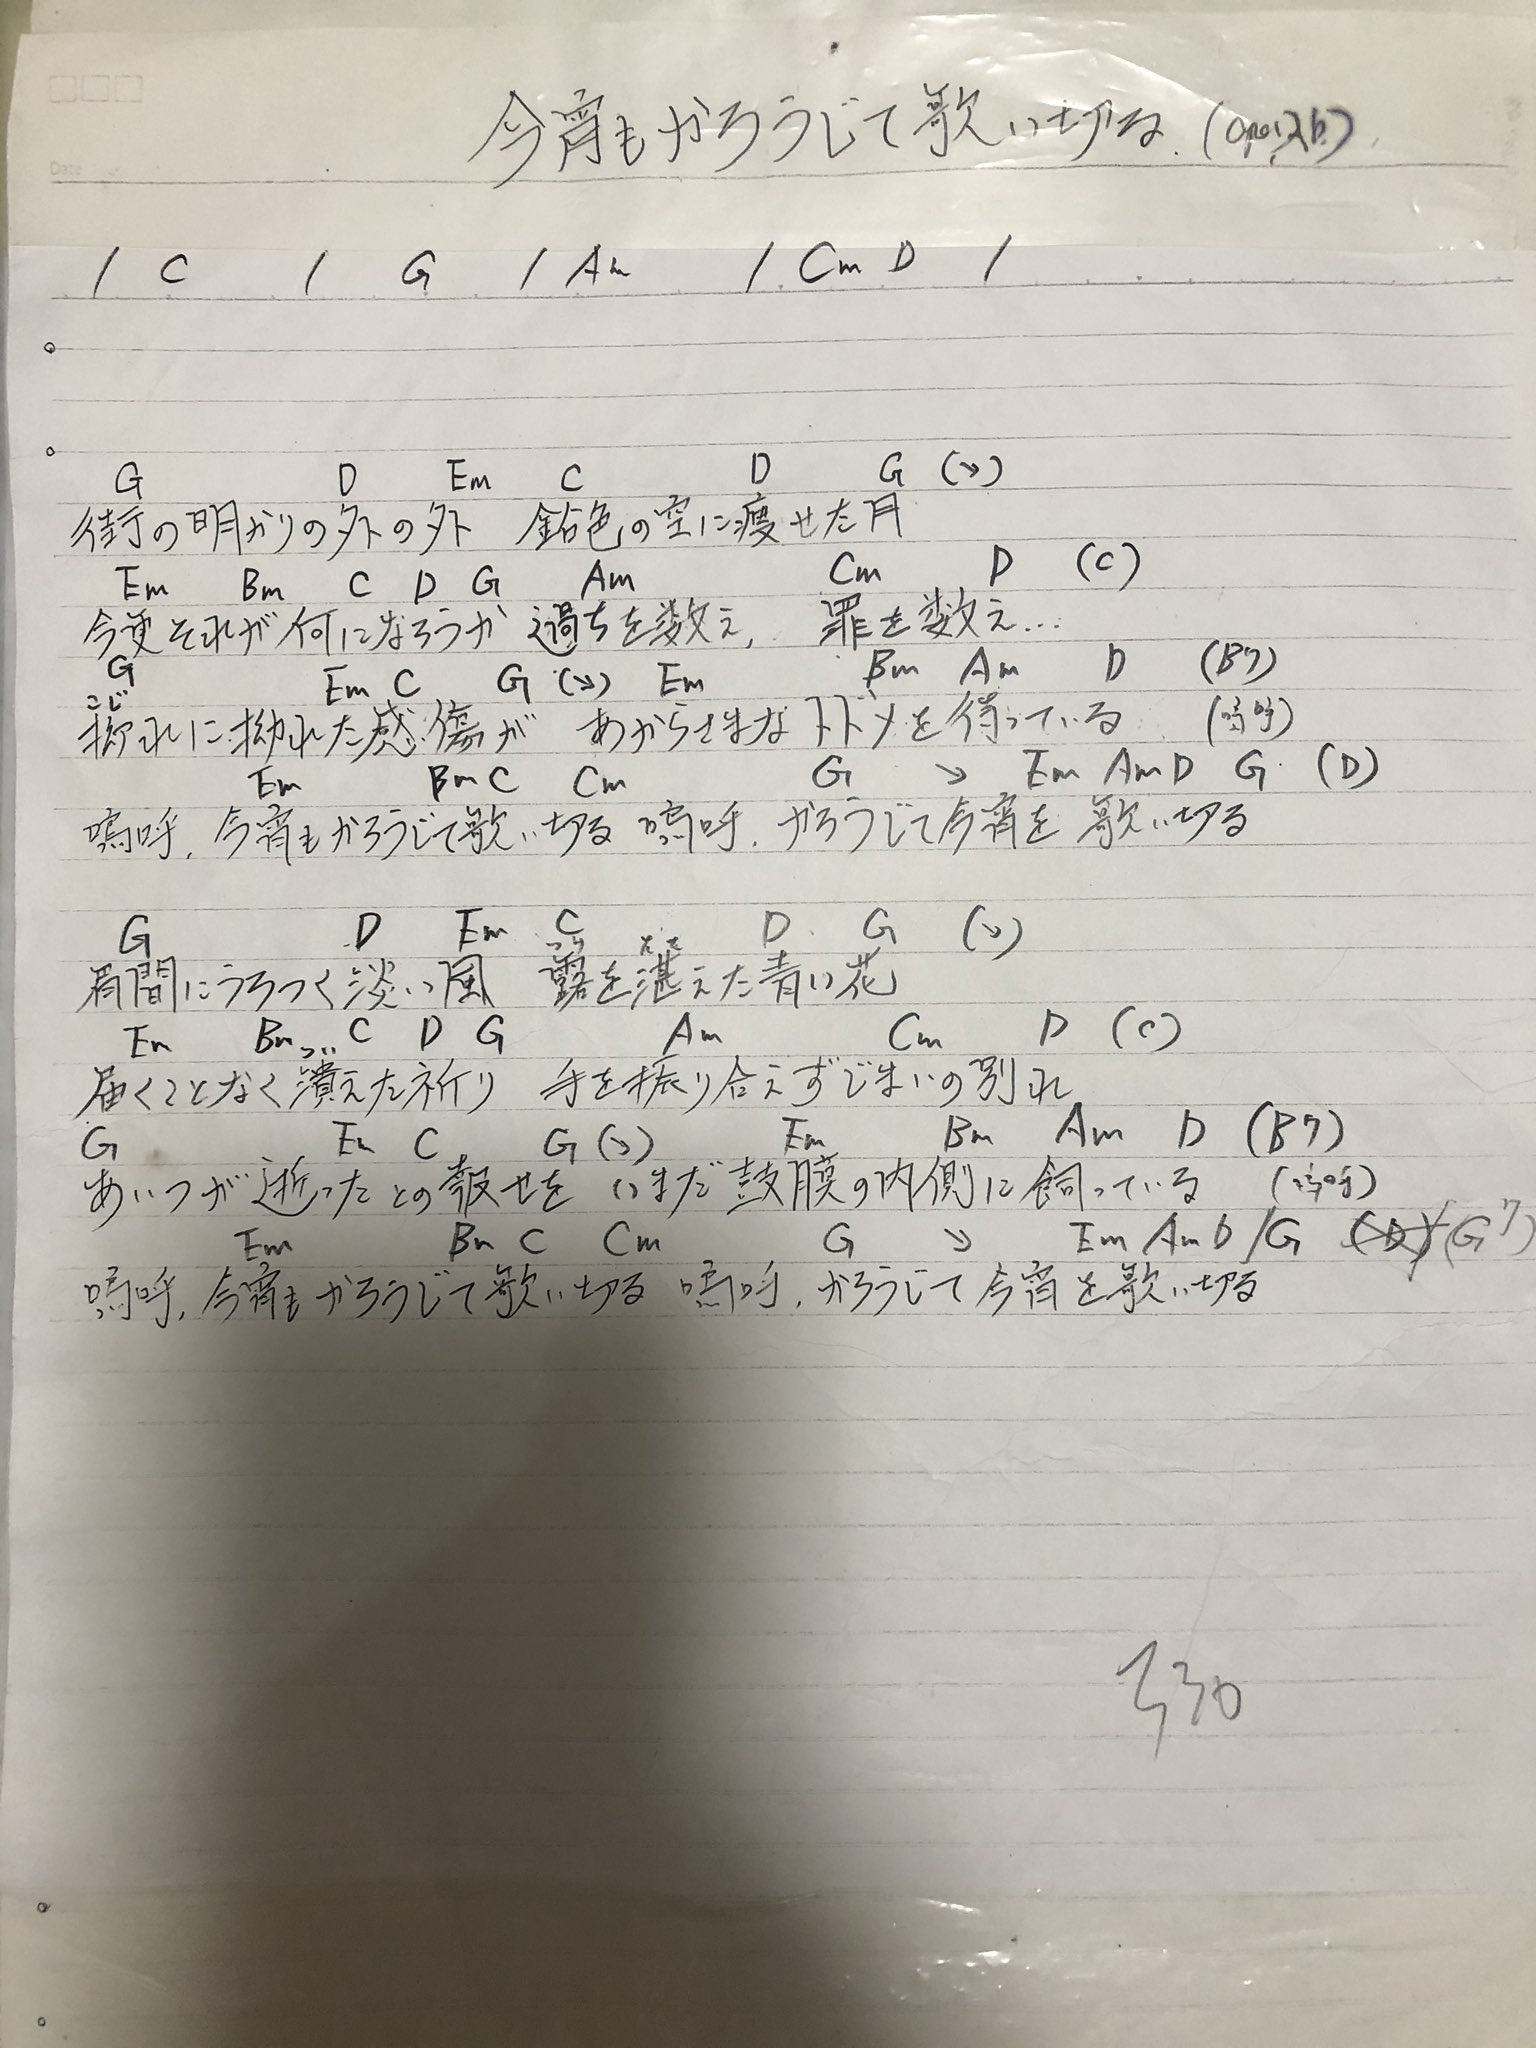 今宵もかろうじて歌い切る
Date
/ C / G / Am / Cm D /
G D Em C D G (↘)
街の明かりの外の外 鉛色の空に痩せた月
Em Bm C D G Am Cm D (C)
今更それが何になろうか 過ちを数え、 罪を数え…
G Em C G (↘) Em Bm Am D (B7)
こじ
拗れに拗れた感傷が あからさまなトドメを待っている (嗚呼)
Em Bm C Cm G ↘ Em Am D G (D)
嗚呼、今宵もかろうじて歌い切る 嗚呼、かろうじて今宵を歌い切る
G D Em C D G (↘)
眉間にうろつく淡い風 露を湛えた青い花
Em Bm C D G Am Cm D (C)
つい
届くことなく潰えた祈り 手を振り合えずじまいの別れ
G Em C G (↘) Em Bm Am D (B7)
あいつが逝ったとの報せを いまだ鼓膜の内側に飼っている (嗚呼)
Em Bm C Cm G ↘ Em Am D /G (D) (G7)
嗚呼、今宵もかろうじて歌い切る 嗚呼、かろうじて今宵を歌い切る